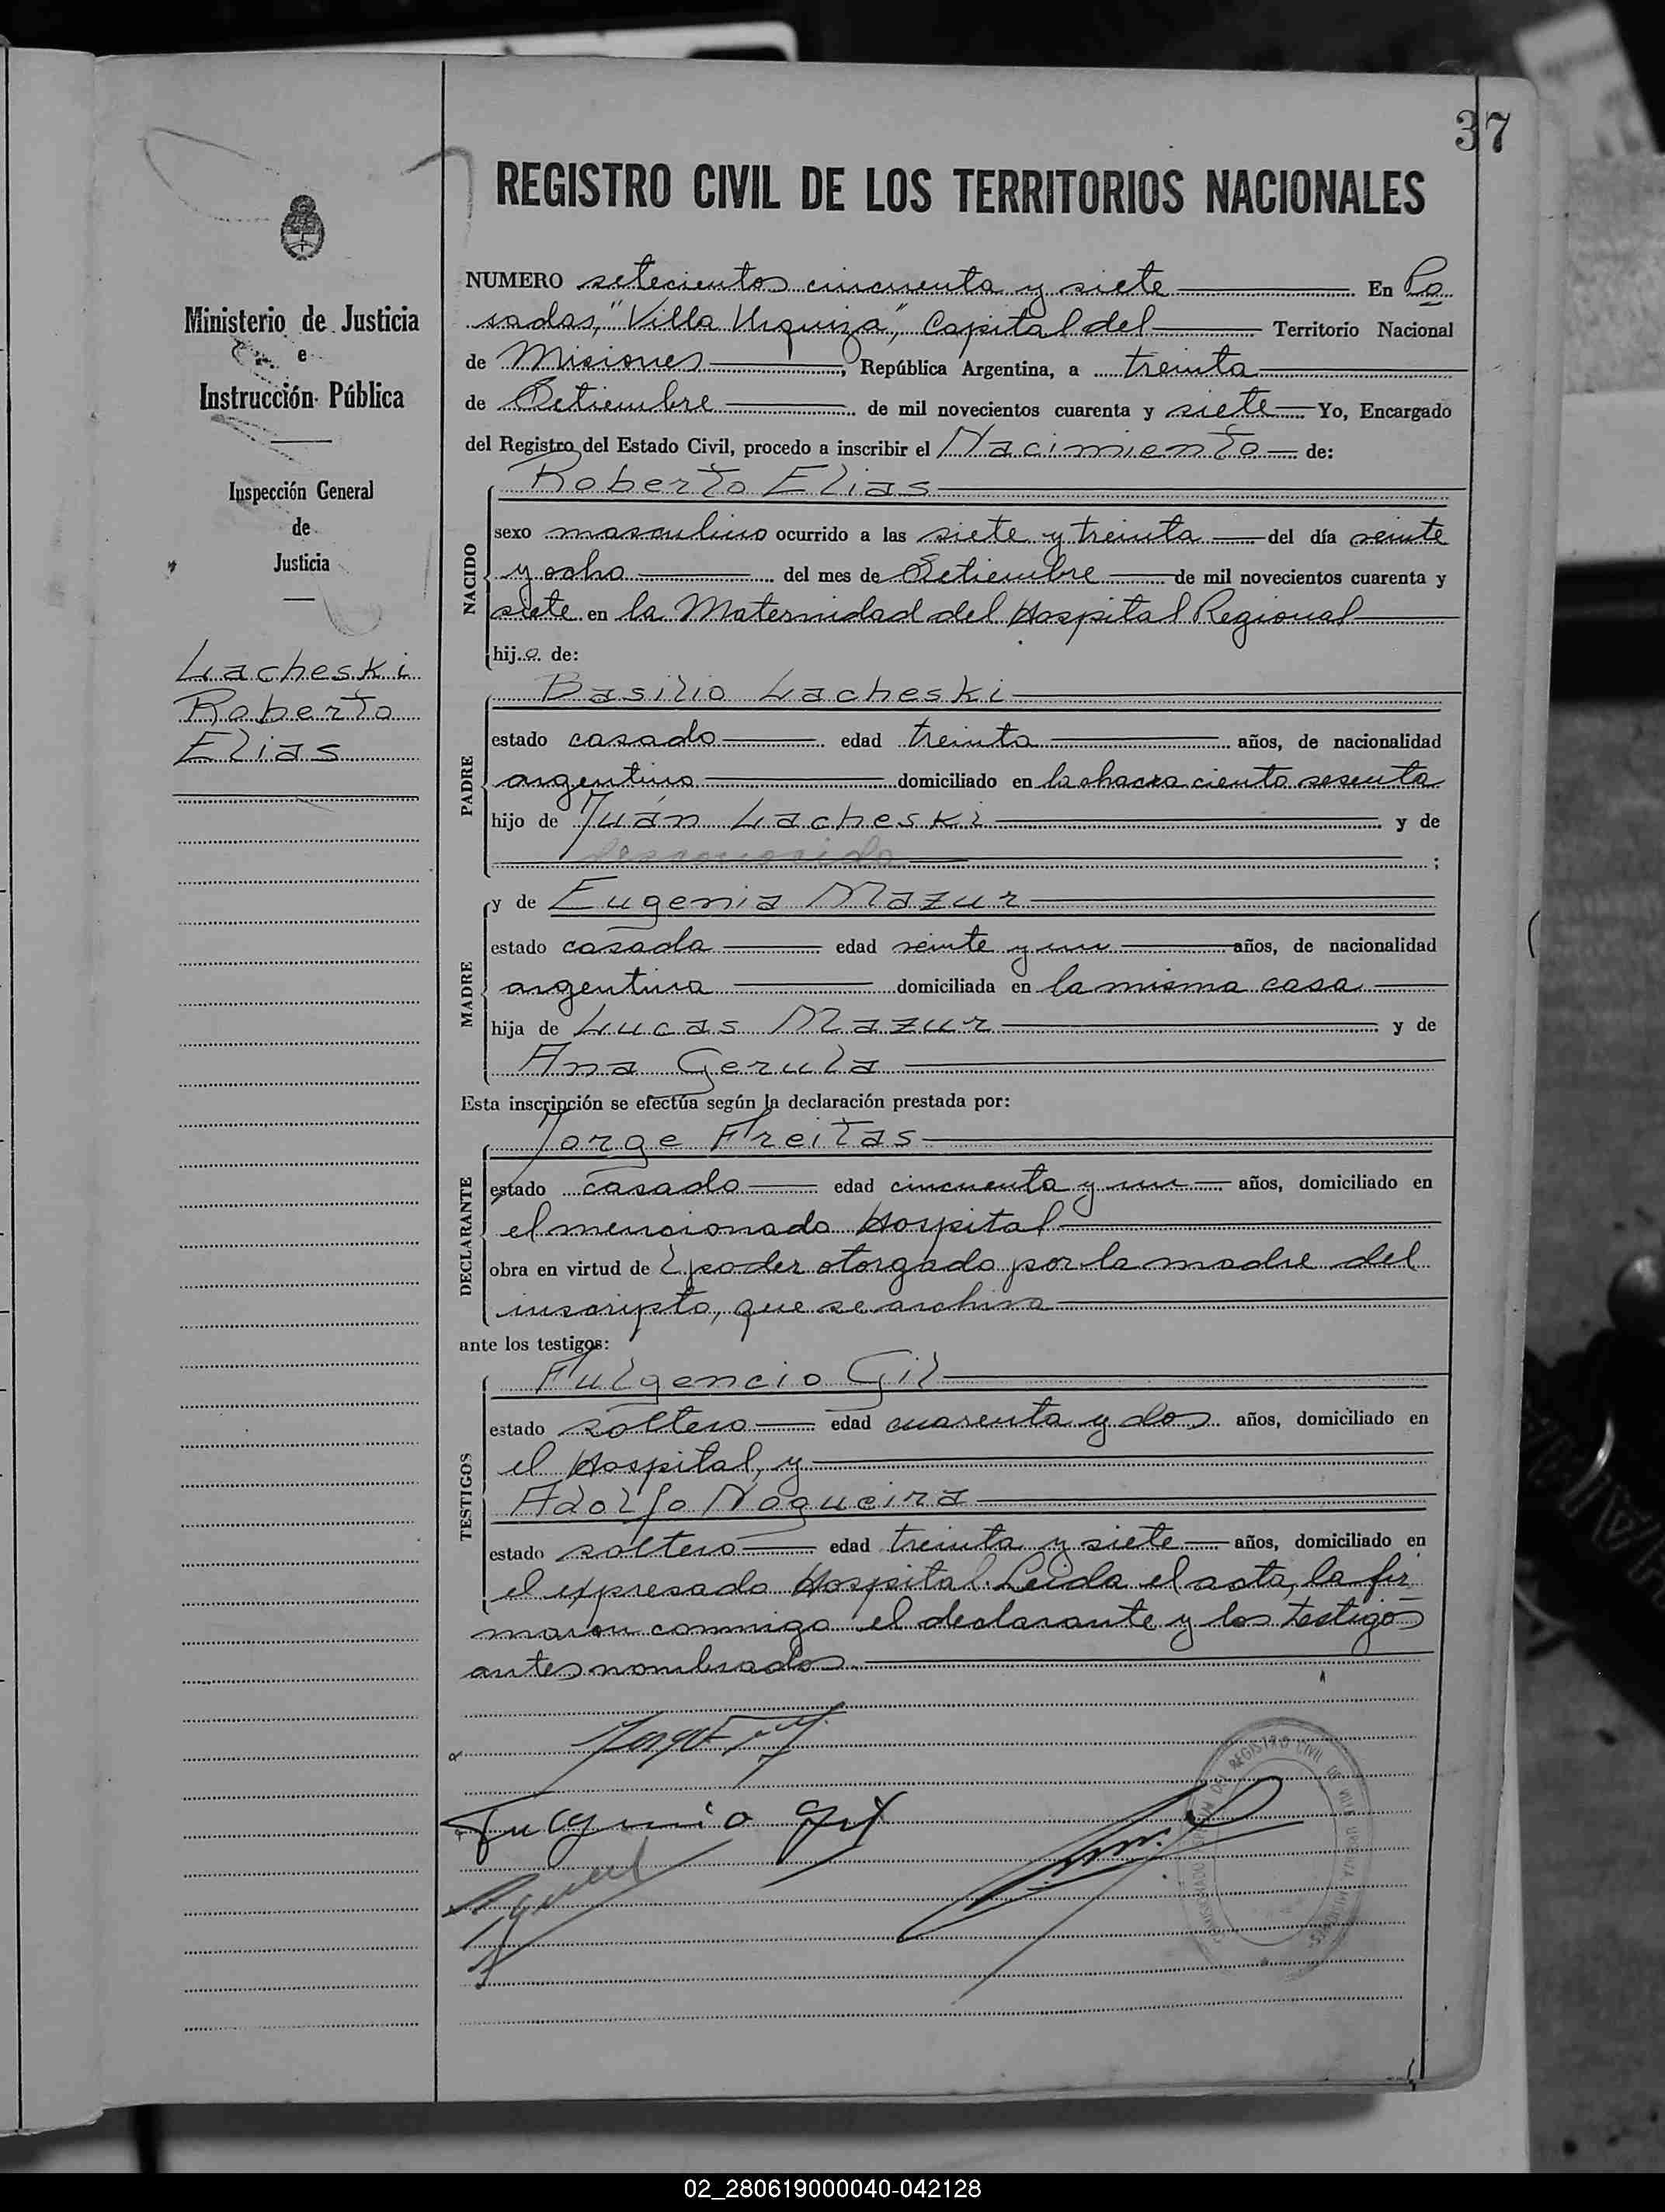 37
REGISTRO CIVIL DE LOS TERRITORIOS NACIONALES
Ministerio de Justicia
e
Instrucción Pública
Inspección General
de
Justicia
Lacheski
Roberto
Elias
NUMERO setecientos cincuenta y siete En Po
sadas, "Villa Urquiza", Capital del Territorio Nacional
de Misiones, República Argentina, a treinta
de Setiembre de mil novecientos cuarenta y siete Yo, Encargado
del Registro del Estado Civil, procedo a inscribir el Nacimiento de:
Roberto Elias
NACIDO
sexo masculino ocurrido a las siete y treinta del día veinte
y ocho del mes de Setiembre de mil novecientos cuarenta y
siete en la Maternidad del Hospital Regional
hijo de:
Basilio Lacheski
PADRE
estado casado edad treinta años, de nacionalidad
argentino domiciliado en la chacra ciento sesenta
hijo de Juán Lacheski y de
desconocida ;
y de Eugenia Mazur
MADRE
estado casada edad veinte y un años, de nacionalidad
argentina domiciliada en la misma casa
hija de Lucas Mazur y de
Ana Gerula
Esta inscripción se efectúa según la declaración prestada por:
Jorge Freitas
DECLARANTE
estado casado edad cincuenta y un años, domiciliado en
el mencionado Hospital
obra en virtud de poder otorgado por la madre del
inscripto, que se archiva
ante los testigos:
Fulgencio Gil
TESTIGOS
estado soltero edad cuarenta y dos años, domiciliado en
el Hospital, y
Adolfo Nogueira
estado soltero edad treinta y siete años, domiciliado en
el expresado Hospital. Leida el acta, la fir
maron conmigo el declarante y los testigos
antes nombrados.
REGISTRO CIVIL
02_280619000040-042128